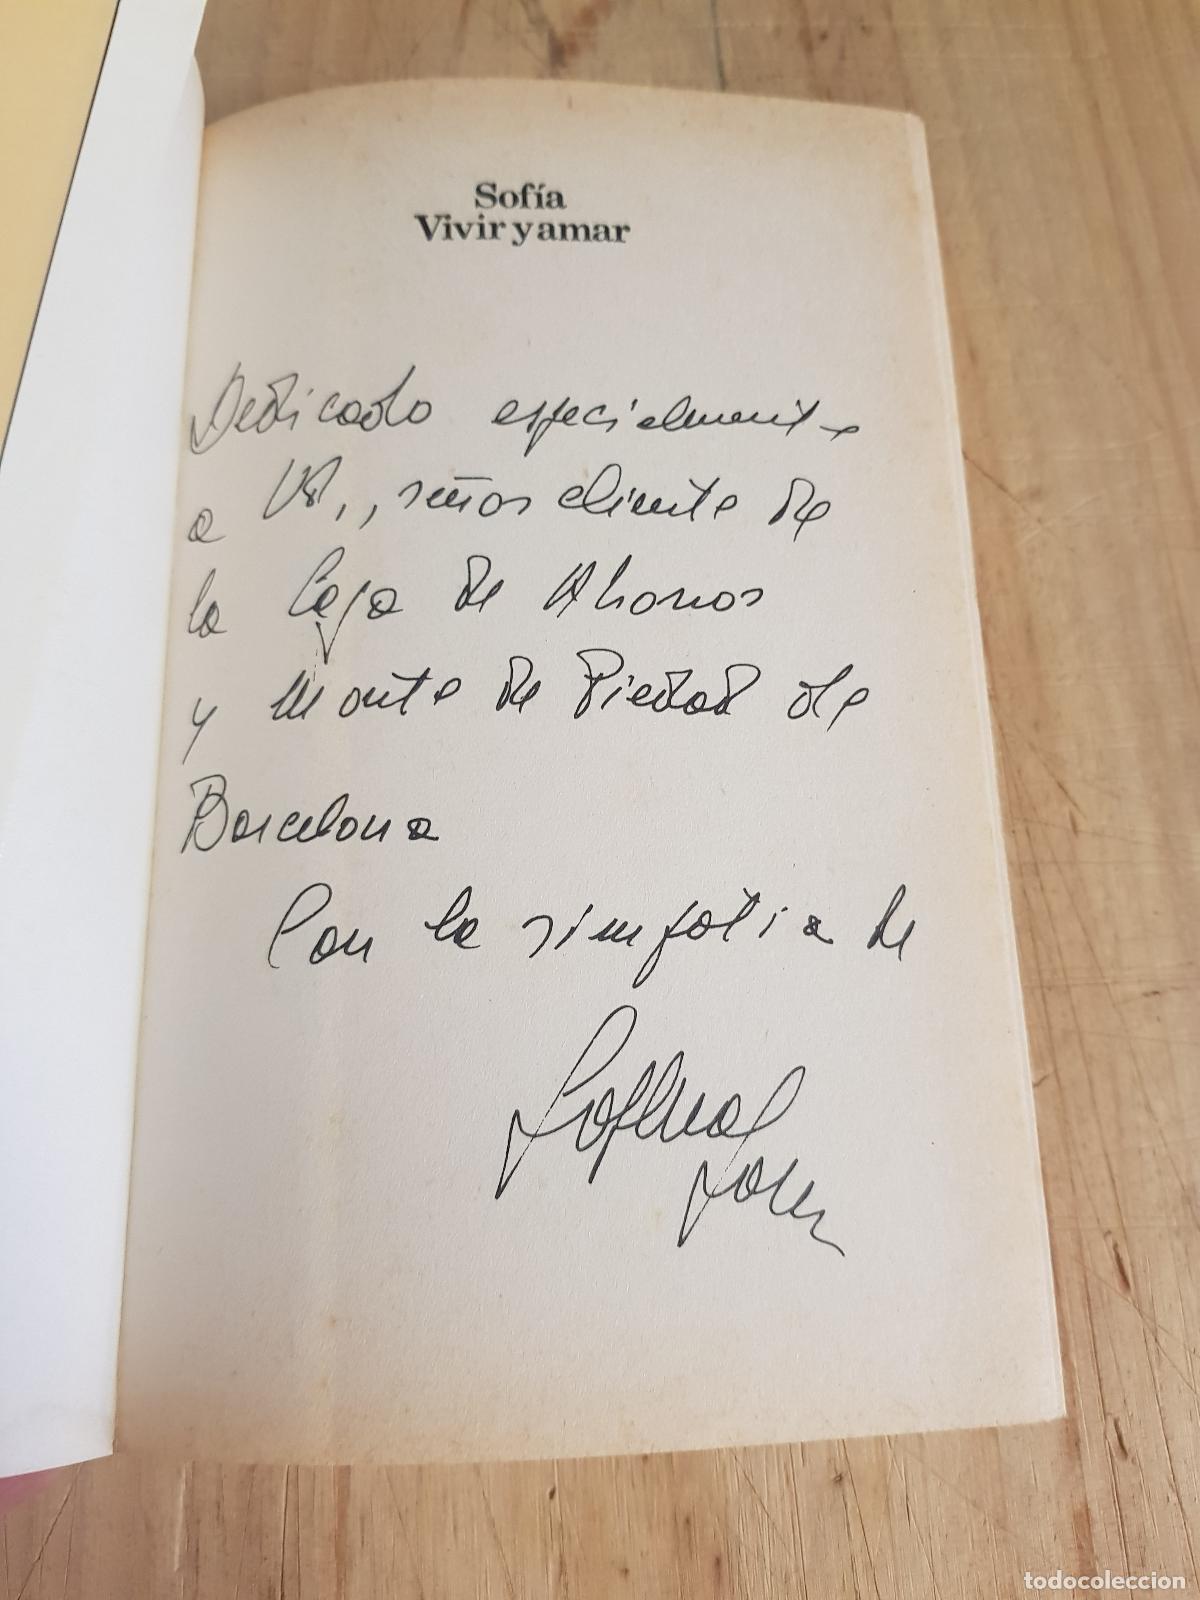 Sofía
Vivir y amar
Dedicado especialmente
a Vd., señor cliente de
la Caja de Ahorros
y Monte de Piedad de
Barcelona
Con la simpatia de
Sofia
Loren
todocoleccion